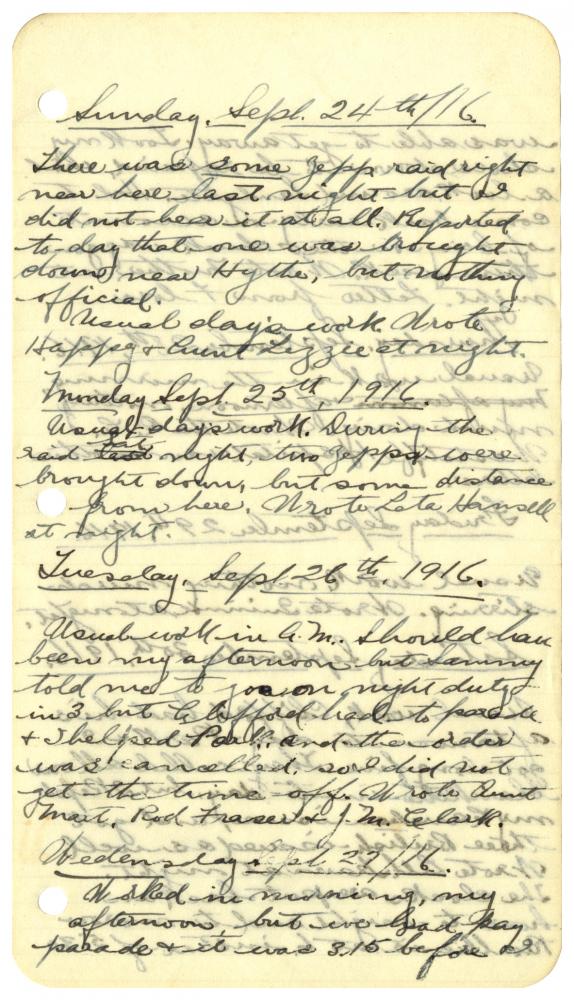 Sunday, Sept. 24th/16.
There was some Zepp raid right
near here last night but I
did not hear it at all. Reported
to-day that one was brought
down near Hythe, but nothing
official.
Usual day's work. Wrote
Happy & Aunt Lizzie at night.
Monday Sept. 25th, 1916.
Usual days work. During the
raid last Sat. night, two Zepps were
brought down, but some distance
from here. Wrote Leta Hansell
at night.
Tuesday, Sept 26th, 1916.
Usual work in A.M. Should have
been my afternoon but Sammy
told me to go on night duty
in 3 but Clifford had to parade
& I helped Park, and the order
was cancelled, so I did not
get the time off. Wrote Aunt
Mart, Rod Fraser & J.M. Clark.
Wedensday Sept 27/16.
Worked in morning, my
afternoon, but we had pay
parade & it was 3.15 before I